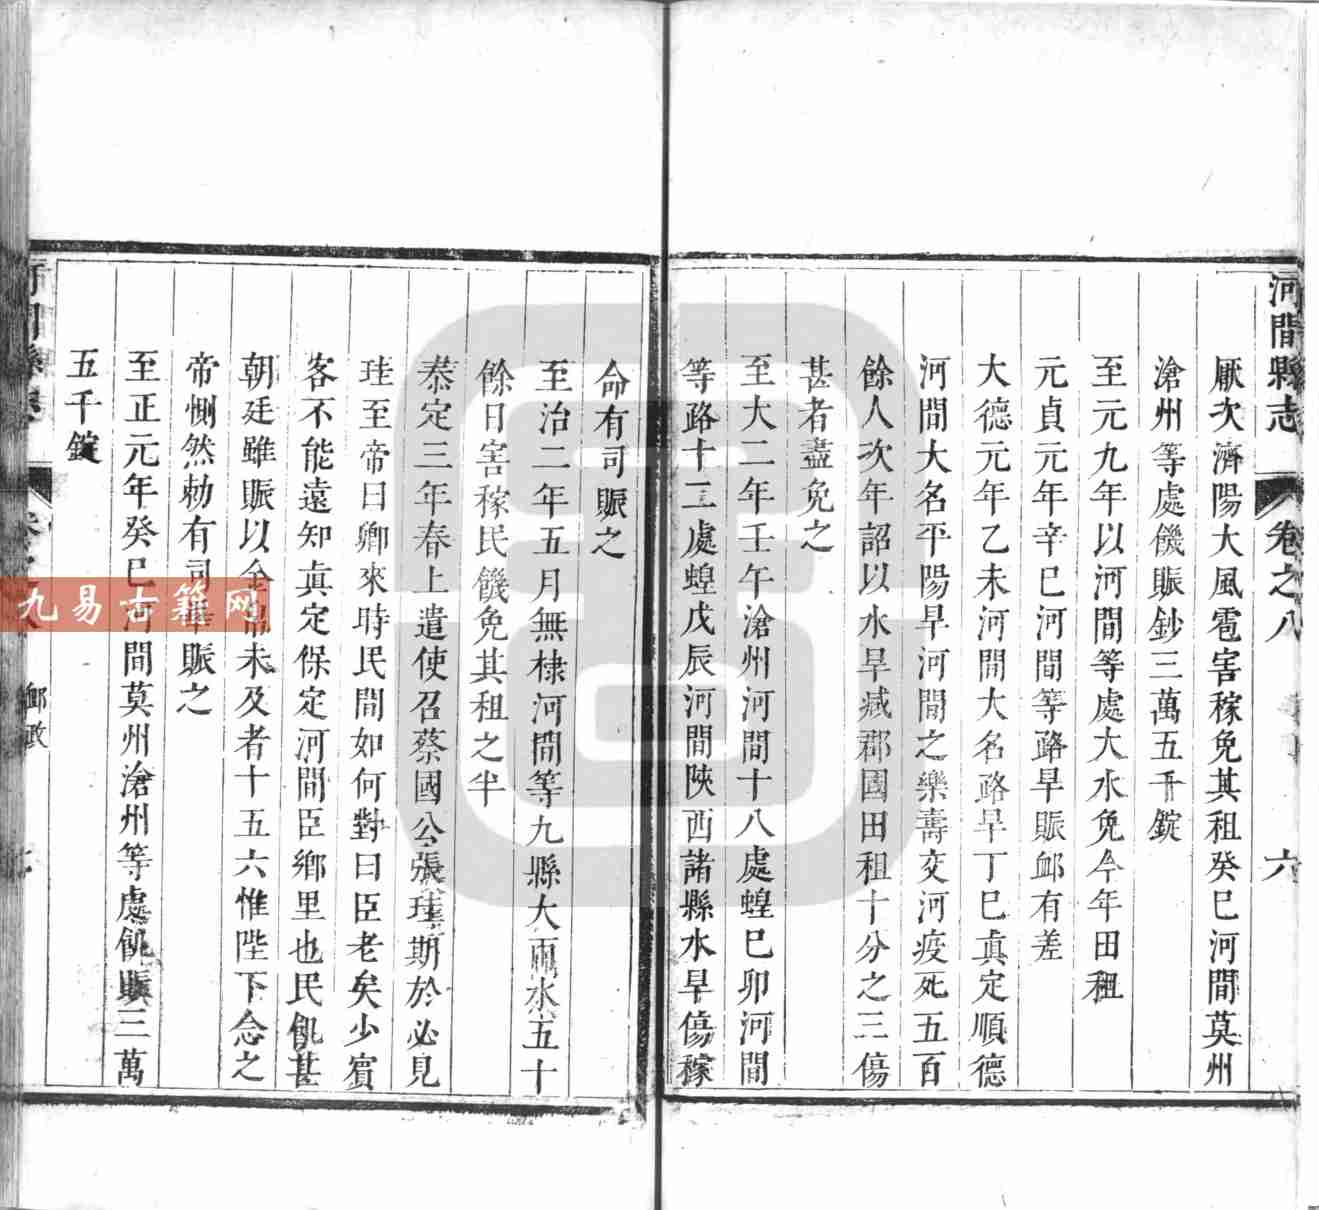 河間縣志 卷之八 六
厭次濟陽大風雹害稼免其租癸巳河間莫州
滄州等處饑賑鈔三萬五千錠
至元九年以河間等處大水免今年田租
元貞元年辛巳河間等路旱賑䘏有差
大德元年乙未河間大名路旱丁巳真定順德
河間大名平陽旱河間之樂壽交河疫死五百
餘人次年詔以水旱减郡國田租十分之三傷
甚者盡免之
至大二年壬午滄州河間十八處蝗巳卯河間
等路十二處蝗戊辰河間陝西諸縣水旱傷稼
命有司賑之
至治二年五月無棣河間等九縣大雨水五十
餘日害稼民饑免其租之半
泰定三年春上遣使召蔡國公張珪期於必見
珪至帝曰卿來時民間如何對曰臣老矣少賓
客不能遠知真定保定河間臣鄉里也民飢甚
朝廷雖賑以金帛未及者十五六惟陛下念之
帝惻然勅有司畢賑之
至正元年癸巳河間莫州滄州等處飢賑三萬
五千錠
河間縣志 卷之八 䘏政 七
九易古籍网